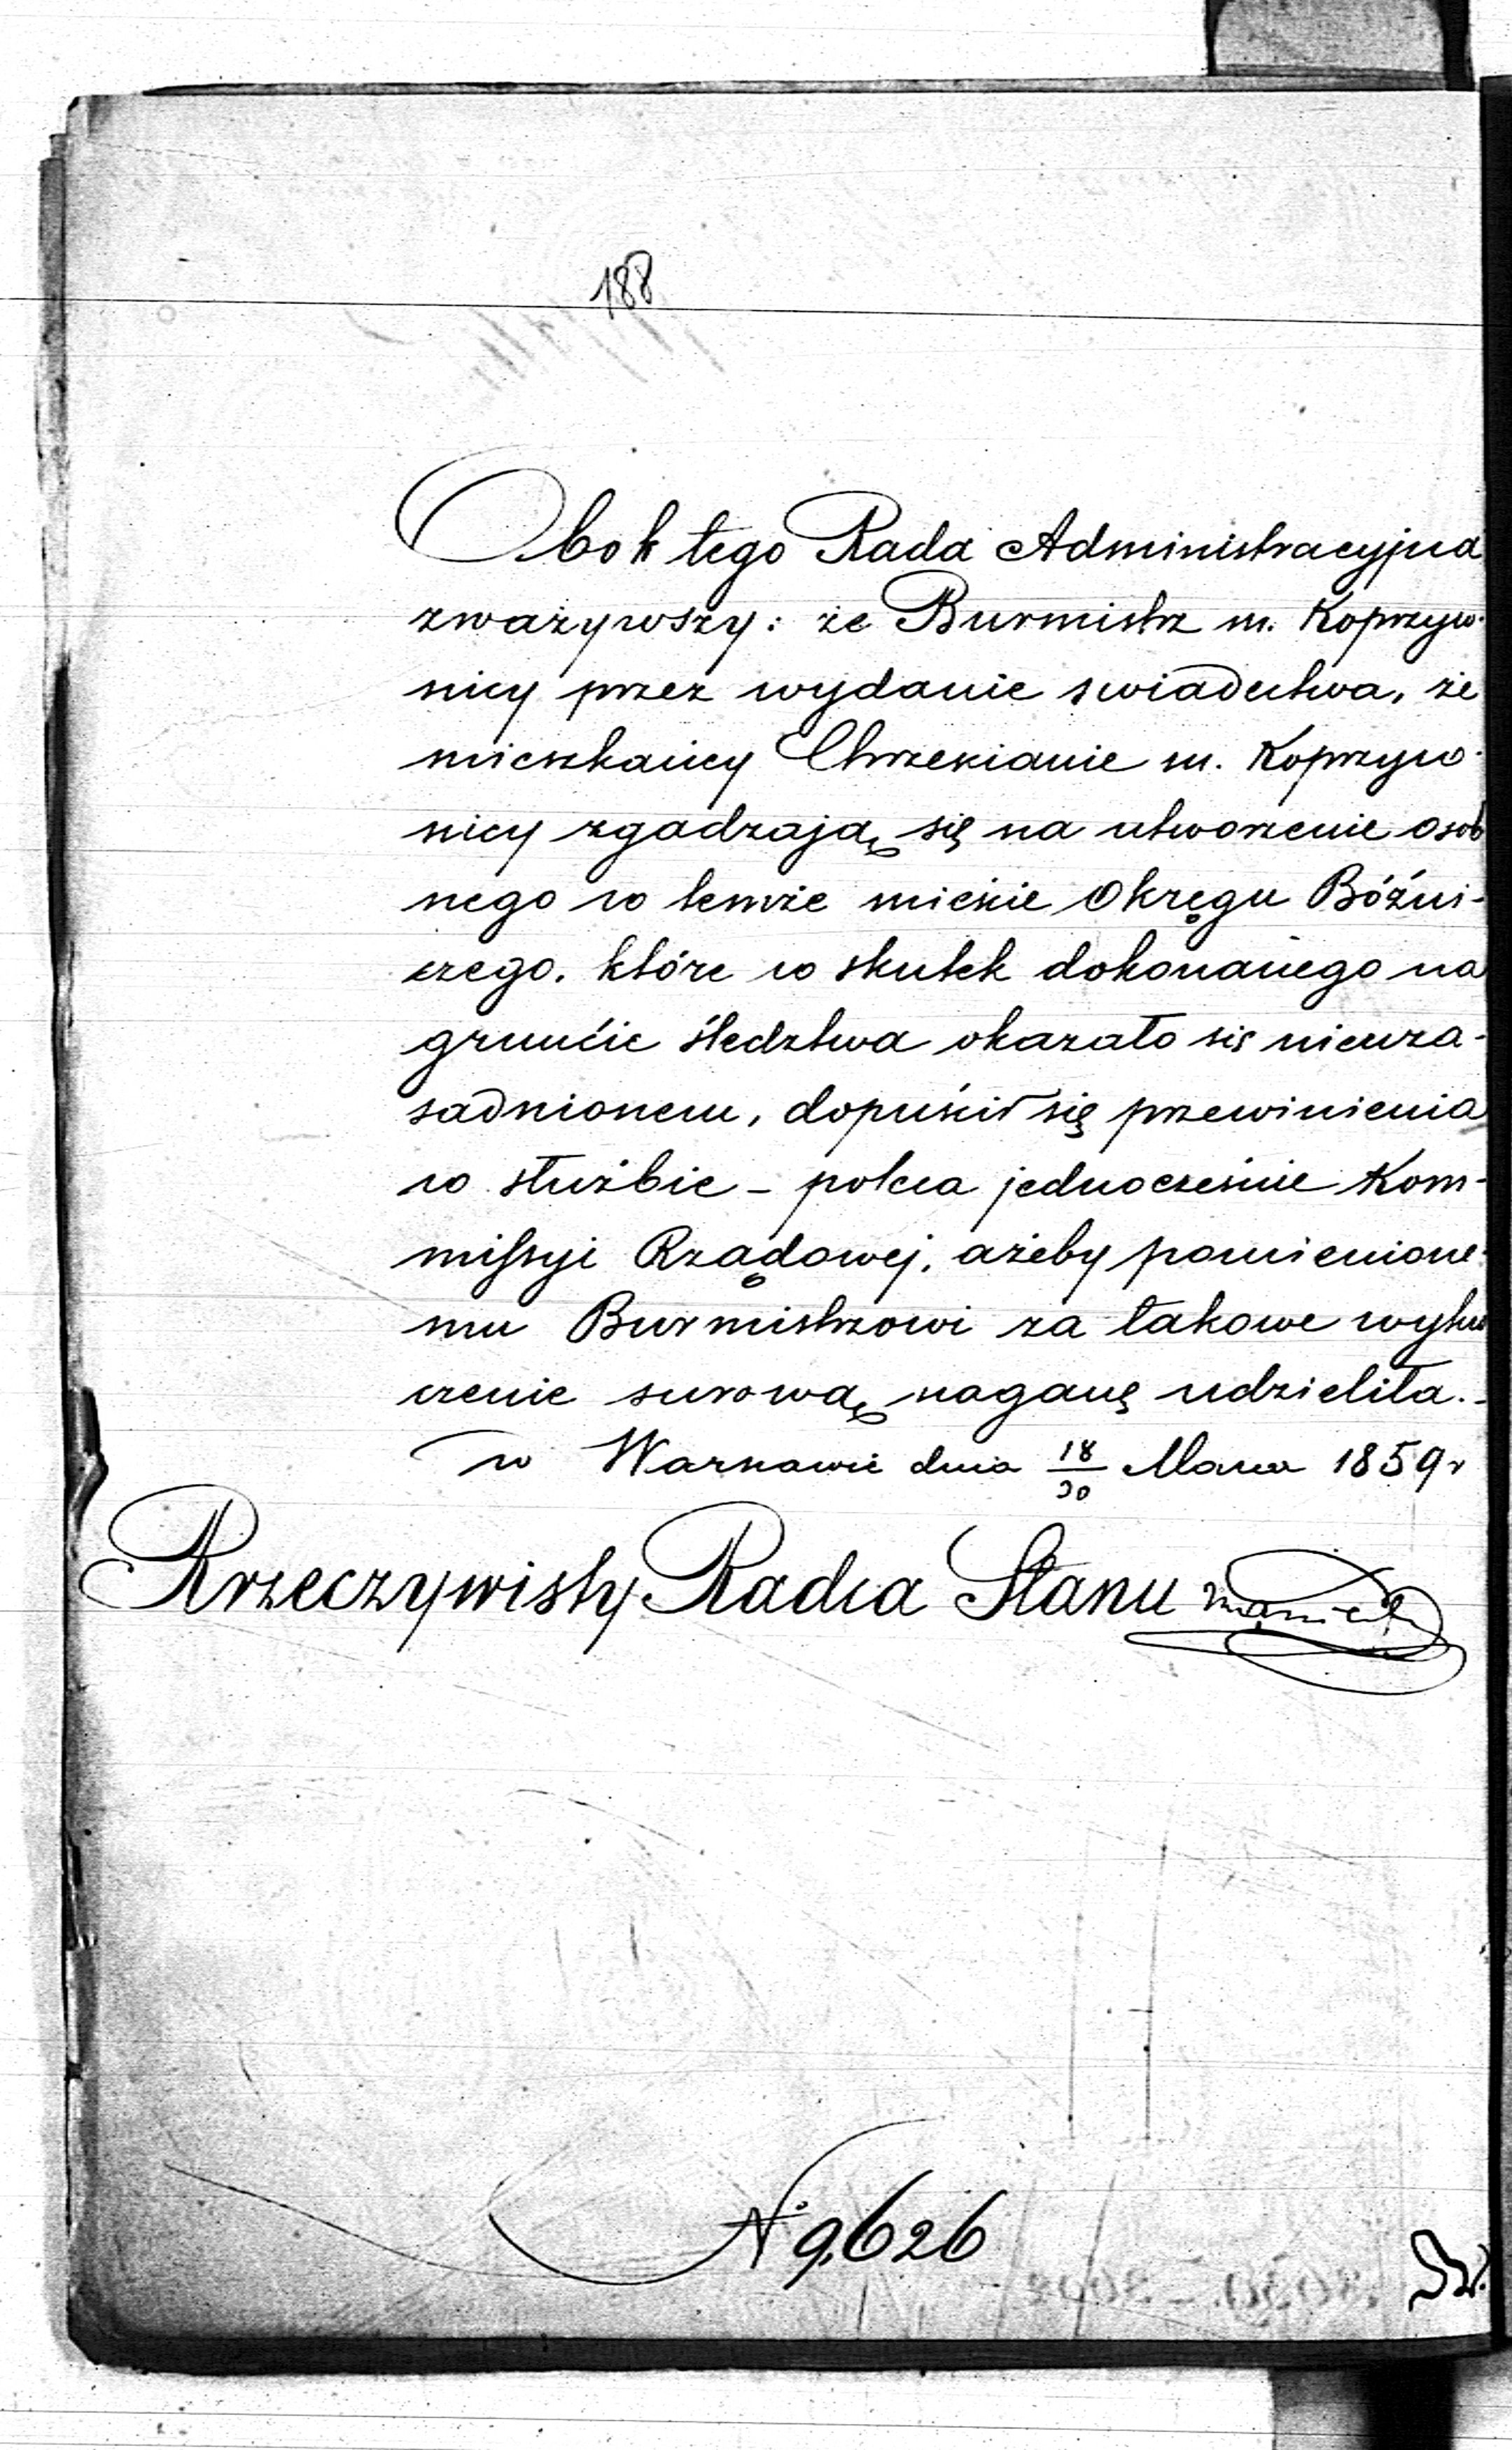 188
Obok tego Rada Administracyjna
zważywszy: że Burmistrz m. Koprzyw-
nicy przez wydanie swiadectwa, że
mieszkańcy Chrześcianie m. Koprzyw-
nicy zgadzają się na utworzenie osob
nego w temże mieście Okręgu Bóźni-
czego, które w skutek dokonanego na
gruńcie śledztwa okazało się nieuza-
sadnionem, dopuścił się przewinienia
w służbie – poleca jednocześnie Kom-
missyi Rządowej, ażeby pomienione-
mu Burmistrzowi za takowe wykro
czenie surową naganę udzieliła.
w Warszawie dnia 18/30 Marca 1859 r
Rzeczywisty Radca Stanu
N 9,626